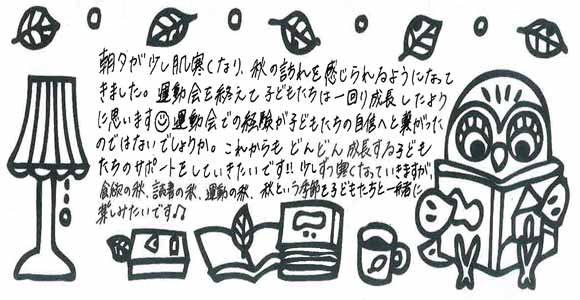 朝夕が少し肌寒くなり、秋の訪れを感じられるようになって
きました。運動会を終えて子どもたちは一回り成長したよう
に思います☺運動会での経験が子どもたちの自信へと繋がった
のではないでしょうか。これからもどんどん成長する子ども
たちのサポートをしていきたいです!!少しずつ寒くなっていきますが、
食欲の秋、読書の秋、運動の秋、秋という季節を子どもたちと一緒に
楽しみたいです♪